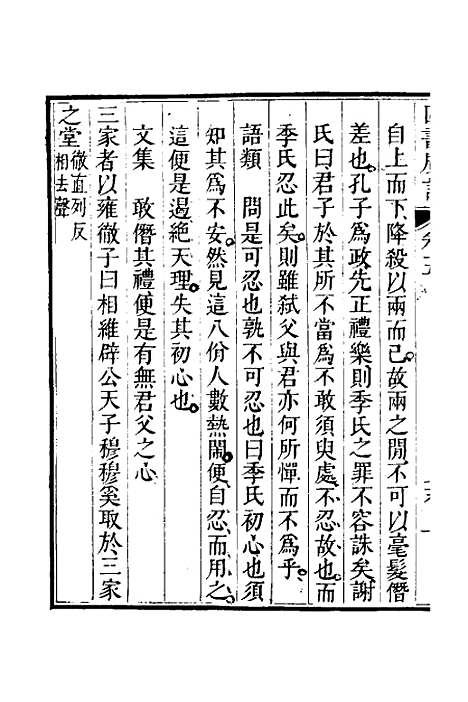 自上而下降殺以兩而已故兩之閒不可以毫髮僭
差也孔子爲政先正禮樂則季氏之罪不容誅矣謝
氏曰君子於其所不當爲不敢須臾處不忍故也而
季氏忍此矣則雖弑父與君亦何所憚而不爲乎
語類　問是可忍也孰不可忍也曰季氏初心也須
知其爲不安然見這八佾人數熱鬧便自忍而用之
這便是遏絶天理失其初心也
文集　敢僭其禮便是有無君父之心
三家者以雍徹子曰相維辟公天子穆穆奚取於三家
之堂徹直列反
相去聲